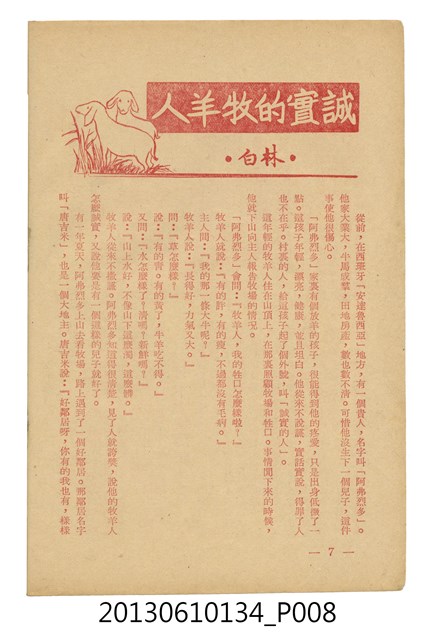 誠實的牧羊人
•林白•
從前，在西班牙「安達魯西亞」地方，有一個貴人，名字叫「阿弗烈多」。
他家大業大，牛馬成羣，田地房產，數也數不清。可惜他沒生下一個兒子，這件
事使他很傷心。
「阿弗烈多」家裏有個放羊的孩子，很能得到他的疼愛，只是出身低微了一
點。這孩子年輕，漂亮，健康，並且坦白。他從來不說謊，實話實說，得罪了人
也不在乎。村裏的人，給這孩子起了個外號，叫「誠實的人」。
這年輕的牧羊人住在山頂上，在那裏照顧牧場和牲口。事情閒下來的時候，
他就下山向主人報告牧場的情況。
「阿弗烈多」會問：「牧羊人，我的牲口怎麼樣啦？」
牧羊人就說：「有的胖，有的瘦，不過都沒有毛病。」
主人問：「我的那一條大牛呢？」
牧羊人說：「長得好，力氣又大。」
問：「草怎麼樣？」
說：「有的青。有的黃了，牛羊吃不得。」
又問：「水怎麼樣了？清嗎？新鮮嗎？」
說：「山上水好，不像山下這麼濁，這麼髒。」
牧羊人從來不撒謊。阿弗烈多知道得很清楚，見了人就誇獎，說他的牧羊人
怎麼誠實，又說他要是有一個這樣的兒子就好了。
有一年夏天，阿弗烈多上山去看牧場，路上遇到了一個好鄰居。那鄰居名字
叫「唐吉米」，也是一個大地主。唐吉米說：「好鄰居呀，你有的我也有，樣樣
— 7 —
20130610134_P008